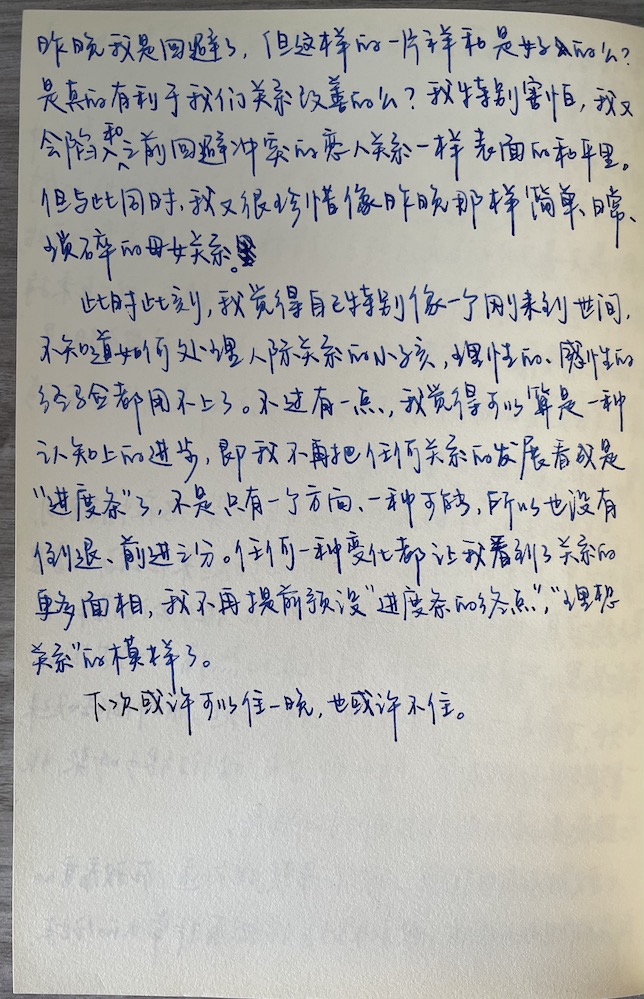 昨晚我是回避了，但这样的一片祥和是好的么？
是真的有利于我们关系改善的么？我特别害怕，我又
会陷入和之前回避冲突的恋人关系一样表面的和平里。
但与此同时，我又很珍惜像昨晚那样简单、日常、
琐碎的母女关系。
此时此刻，我觉得自己特别像一个刚来到世间，
不知道如何处理人际关系的小孩，理性的、感性的
经验都用不上了。不过有一点，我觉得可以算是一种
认知上的进步，即我不再把任何关系的发展看成是
“进度条”了，不是只有一个方向、一种可能，所以也没有
倒退、前进之分。任何一种变化都让我看到了关系的
更多面相，我不再提前预设“进度条的终点”，“理想
关系”的模样了。
下次或许可以住一晚，也或许不住。